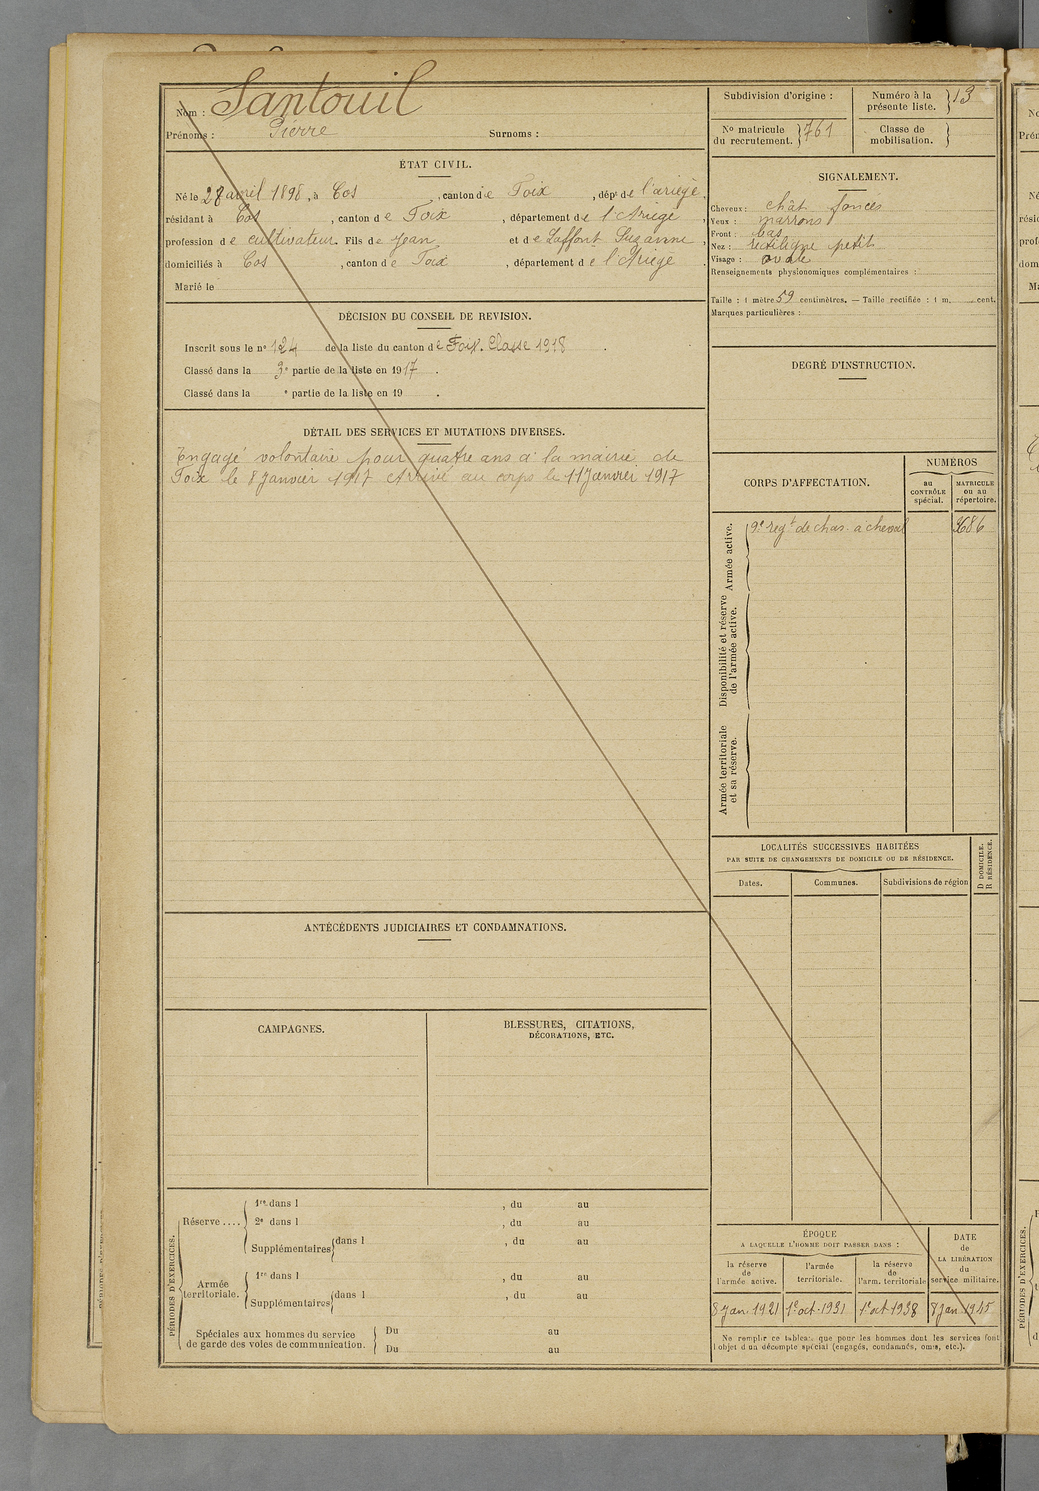 Nom : Santouil
Prénoms : Pierre Surnoms :
Subdivision d'origine :
Numéro à la présente liste. } 13
No matricule du recrutement. } 761
Classe de mobilisation. }
ÉTAT CIVIL.
Né le 28 avril 1898, à Cos, canton de Foix, dépt de l'ariège,
résidant à Cos, canton de Foix, département de l'Ariège,
profession de cultivateur. Fils de Jean et de Laffont Suzanne,
domiciliés à Cos, canton de Foix, département de l'Ariège.
Marié le
DÉCISION DU CONSEIL DE REVISION.
Inscrit sous le no 124 de la liste du canton de Foix. Classe 1918.
Classé dans la 3e partie de la liste en 1917.
Classé dans la e partie de la liste en 19 .
DÉTAIL DES SERVICES ET MUTATIONS DIVERSES.
Engagé volontaire pour quatre ans à la mairie de
Foix le 8 Janvier 1917 Arrivé au corps le 11 Janvier 1917
ANTÉCÉDENTS JUDICIAIRES ET CONDAMNATIONS.
CAMPAGNES.
BLESSURES, CITATIONS,
DÉCORATIONS, ETC.
PÉRIODES D'EXERCICES.
Réserve....
1re dans l , du au
2e dans l , du au
Supplémentaires } dans l , du au
Armée territoriale.
1re dans l , du au
Supplémentaires } dans l , du au
Spéciales aux hommes du service
de garde des voies de communication.
Du au
Du au
SIGNALEMENT.
Cheveux : chât foncés
Yeux : marrons
Front : bas
Nez : rectiligne petit
Visage : ovale
Renseignements physionomiques complémentaires :
Taille : 1 mètre 59 centimètres. — Taille rectifiée : 1 m. cent.
Marques particulières :
DEGRÉ D'INSTRUCTION.
CORPS D'AFFECTATION.
NUMÉROS
au CONTRÔLE spécial.
MATRICULE ou au répertoire.
Armée active.
9e regt de chas. à cheval 3686
Disponibilité et réserve
de l'armée active.
Armée territoriale
et sa réserve.
LOCALITÉS SUCCESSIVES HABITÉES
PAR SUITE DE CHANGEMENTS DE DOMICILE OU DE RÉSIDENCE.
D DOMICILE.
R RÉSIDENCE.
Dates. Communes. Subdivisions de région
ÉPOQUE
A LAQUELLE L'HOMME DOIT PASSER DANS :
la réserve de l'armée active.
l'armée territoriale.
la réserve de l'arm. territoriale
DATE de LA LIBÉRATION du service militaire.
8 jan 1921 1e oct. 1931 1e oct 1938 8 jan 1945
Ne remplir ce tableau que pour les hommes dont les services font
l'objet d'un décompte spécial (engagés, condamnés, omis, etc.).